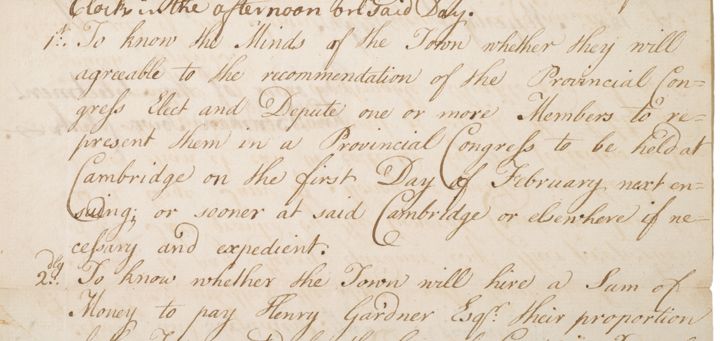 Clock in the afternoon of said Day.
1st. To know the Minds of the Town whether they will
agreeable to the recommendation of the Provincial Con=
gress Elect and Depute one or more Members to re=
present them in a Provincial Congress to be held at
Cambridge on the first Day of February next en-
suing; or sooner at said Cambridge or elsewhere if ne-
cessary and expedient.
2dly. To know whether the Town will hire a Sum of
Money to pay Henry Gardner Esqr. their proportion